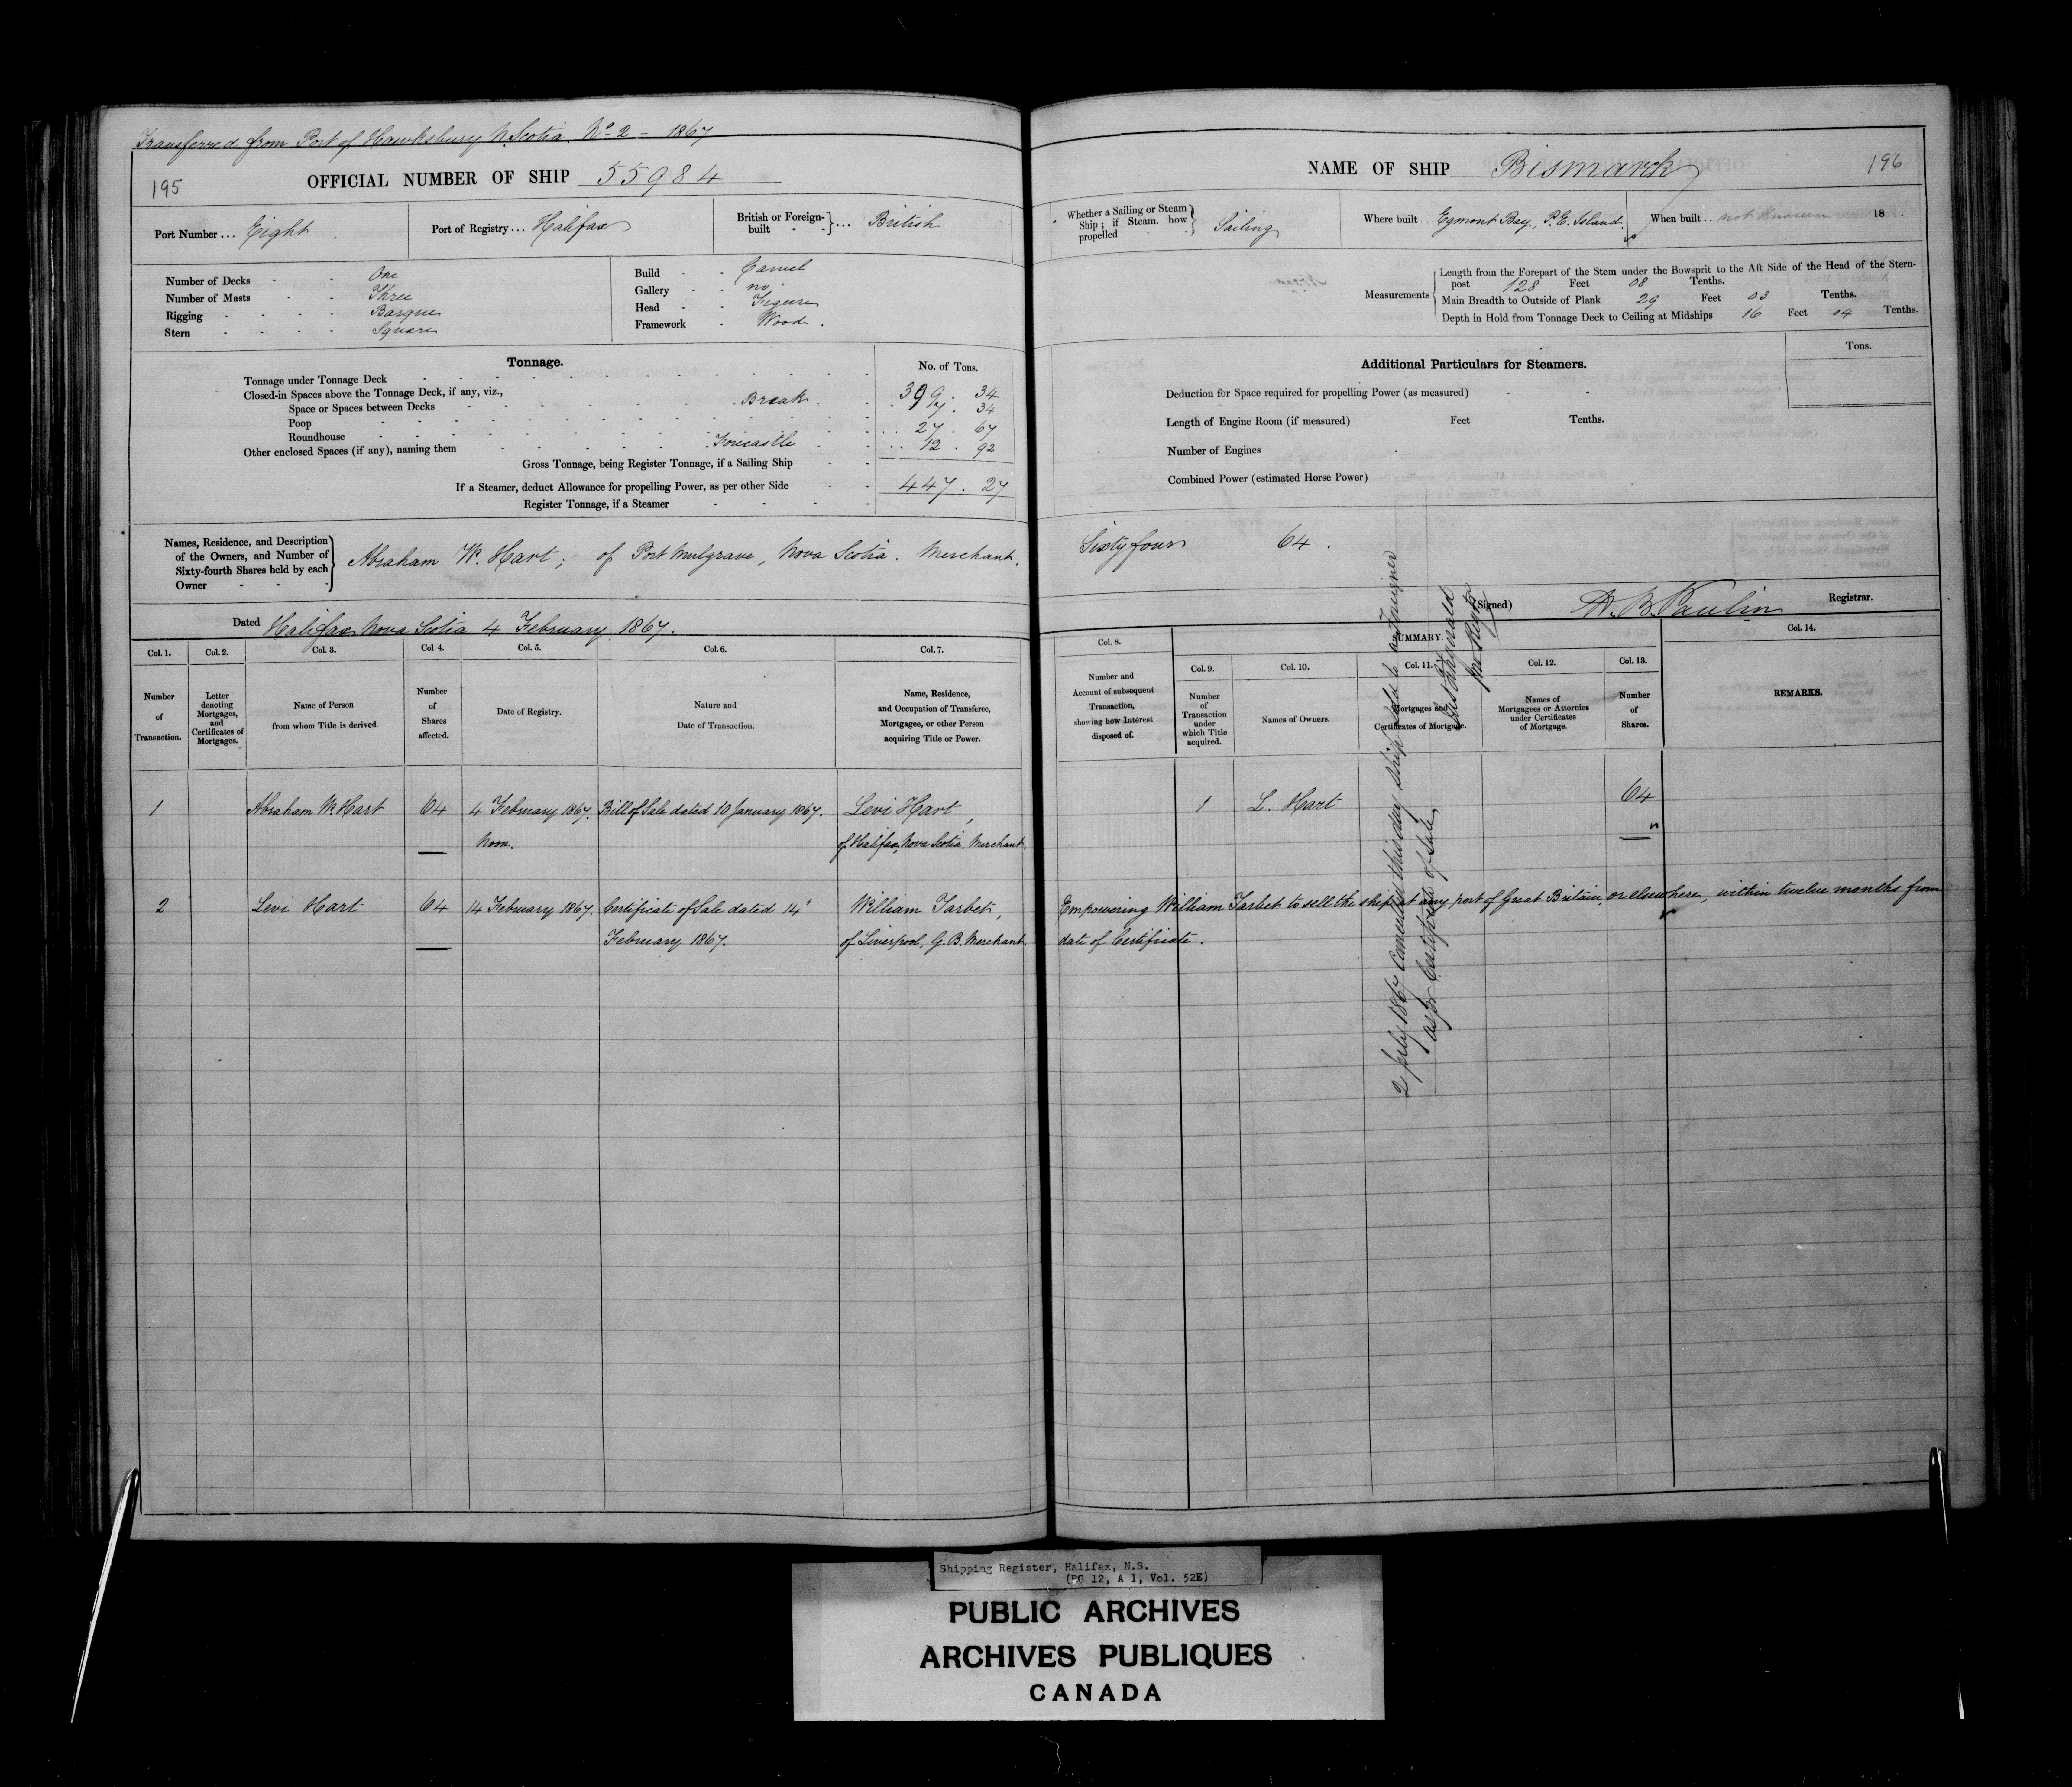 Transferred from Port of Hawksbury N. Scotia. No 2 - 1867
195
OFFICIAL NUMBER OF SHIP 55984
Port Number ... Eight
Port of Registry ... Halifax
British or Foreign-built ... British
Number of Decks One
Number of Masts Three
Rigging Barque
Stern Square
Build Carvel
Gallery no
Head Figure
Framework Wood.
Tonnage.
No. of Tons.
Tonnage under Tonnage Deck 399. 34
Closed-in Spaces above the Tonnage Deck, if any, viz.,
Space or Spaces between Decks Break 7. 34
Poop 27. 67
Roundhouse
Other enclosed Spaces (if any), naming them Forecastle 12. 92
Gross Tonnage, being Register Tonnage, if a Sailing Ship 447. 27
If a Steamer, deduct Allowance for propelling Power, as per other Side
Register Tonnage, if a Steamer
Names, Residence, and Description
of the Owners, and Number of
Sixty-fourth Shares held by each
Owner
Abraham W. Hart; of Port Mulgrave, Nova Scotia. Merchant.
Dated Halifax Nova Scotia 4 February 1867.
Col. 1. Col. 2. Col. 3. Col. 4. Col. 5. Col. 6. Col. 7.
Number of Transaction.
Letter denoting Mortgages, and Certificates of Mortgages.
Name of Person from whom Title is derived
Number of Shares affected.
Date of Registry.
Nature and Date of Transaction.
Name, Residence, and Occupation of Transferee, Mortgagee, or other Person acquiring Title or Power.
1 Abraham W. Hart 64 4 February 1867. Bill of Sale dated 10 January 1867. Levi Hart,
Noon. of Halifax, Nova Scotia. Merchant.
2 Levi Hart 64 14 February 1867. Certificate of Sale dated 14 William Tarbet,
February 1867. of Liverpool, G. B. Merchant
NAME OF SHIP Bismarck
196
Whether a Sailing or Steam Ship; if Steam. how propelled Sailing
Where built .. Egmont Bay, P. E. Island.
When built .. not known 18
Measurements
Length from the Forepart of the Stem under the Bowsprit to the Aft Side of the Head of the Stern-
post 128 Feet 08 Tenths.
Main Breadth to Outside of Plank 29 Feet 03 Tenths.
Depth in Hold from Tonnage Deck to Ceiling at Midships 16 Feet 04 Tenths.
Additional Particulars for Steamers.
Tons.
Deduction for Space required for propelling Power (as measured)
Length of Engine Room (if measured) Feet Tenths.
Number of Engines
Combined Power (estimated Horse Power)
Sixty four 64.
(Signed) Registrar.
Col. 8.
SUMMARY.
Col. 9. Col. 10. Col. 11. Col. 12. Col. 13. Col. 14.
Number and Account of subsequent Transaction, showing how Interest disposed of.
Number of Transaction under which Title acquired.
Names of Owners.
Mortgages and Certificates of Mortgage.
Names of Mortgagees or Attornies under Certificates of Mortgage.
Number of Shares.
REMARKS.
1 L. Hart 64
Empowering William Tarbet to sell the ship at any port of Great Britain, or elsewhere, within twelve months from
date of Certificate.
2 July 1867 Cancelled this day ship sold to a Foreigner
as per Certificate of Sale
Shipping Register, Halifax, N.S.
(PG 12, A 1, Vol. 52E)
PUBLIC ARCHIVES
ARCHIVES PUBLIQUES
CANADA